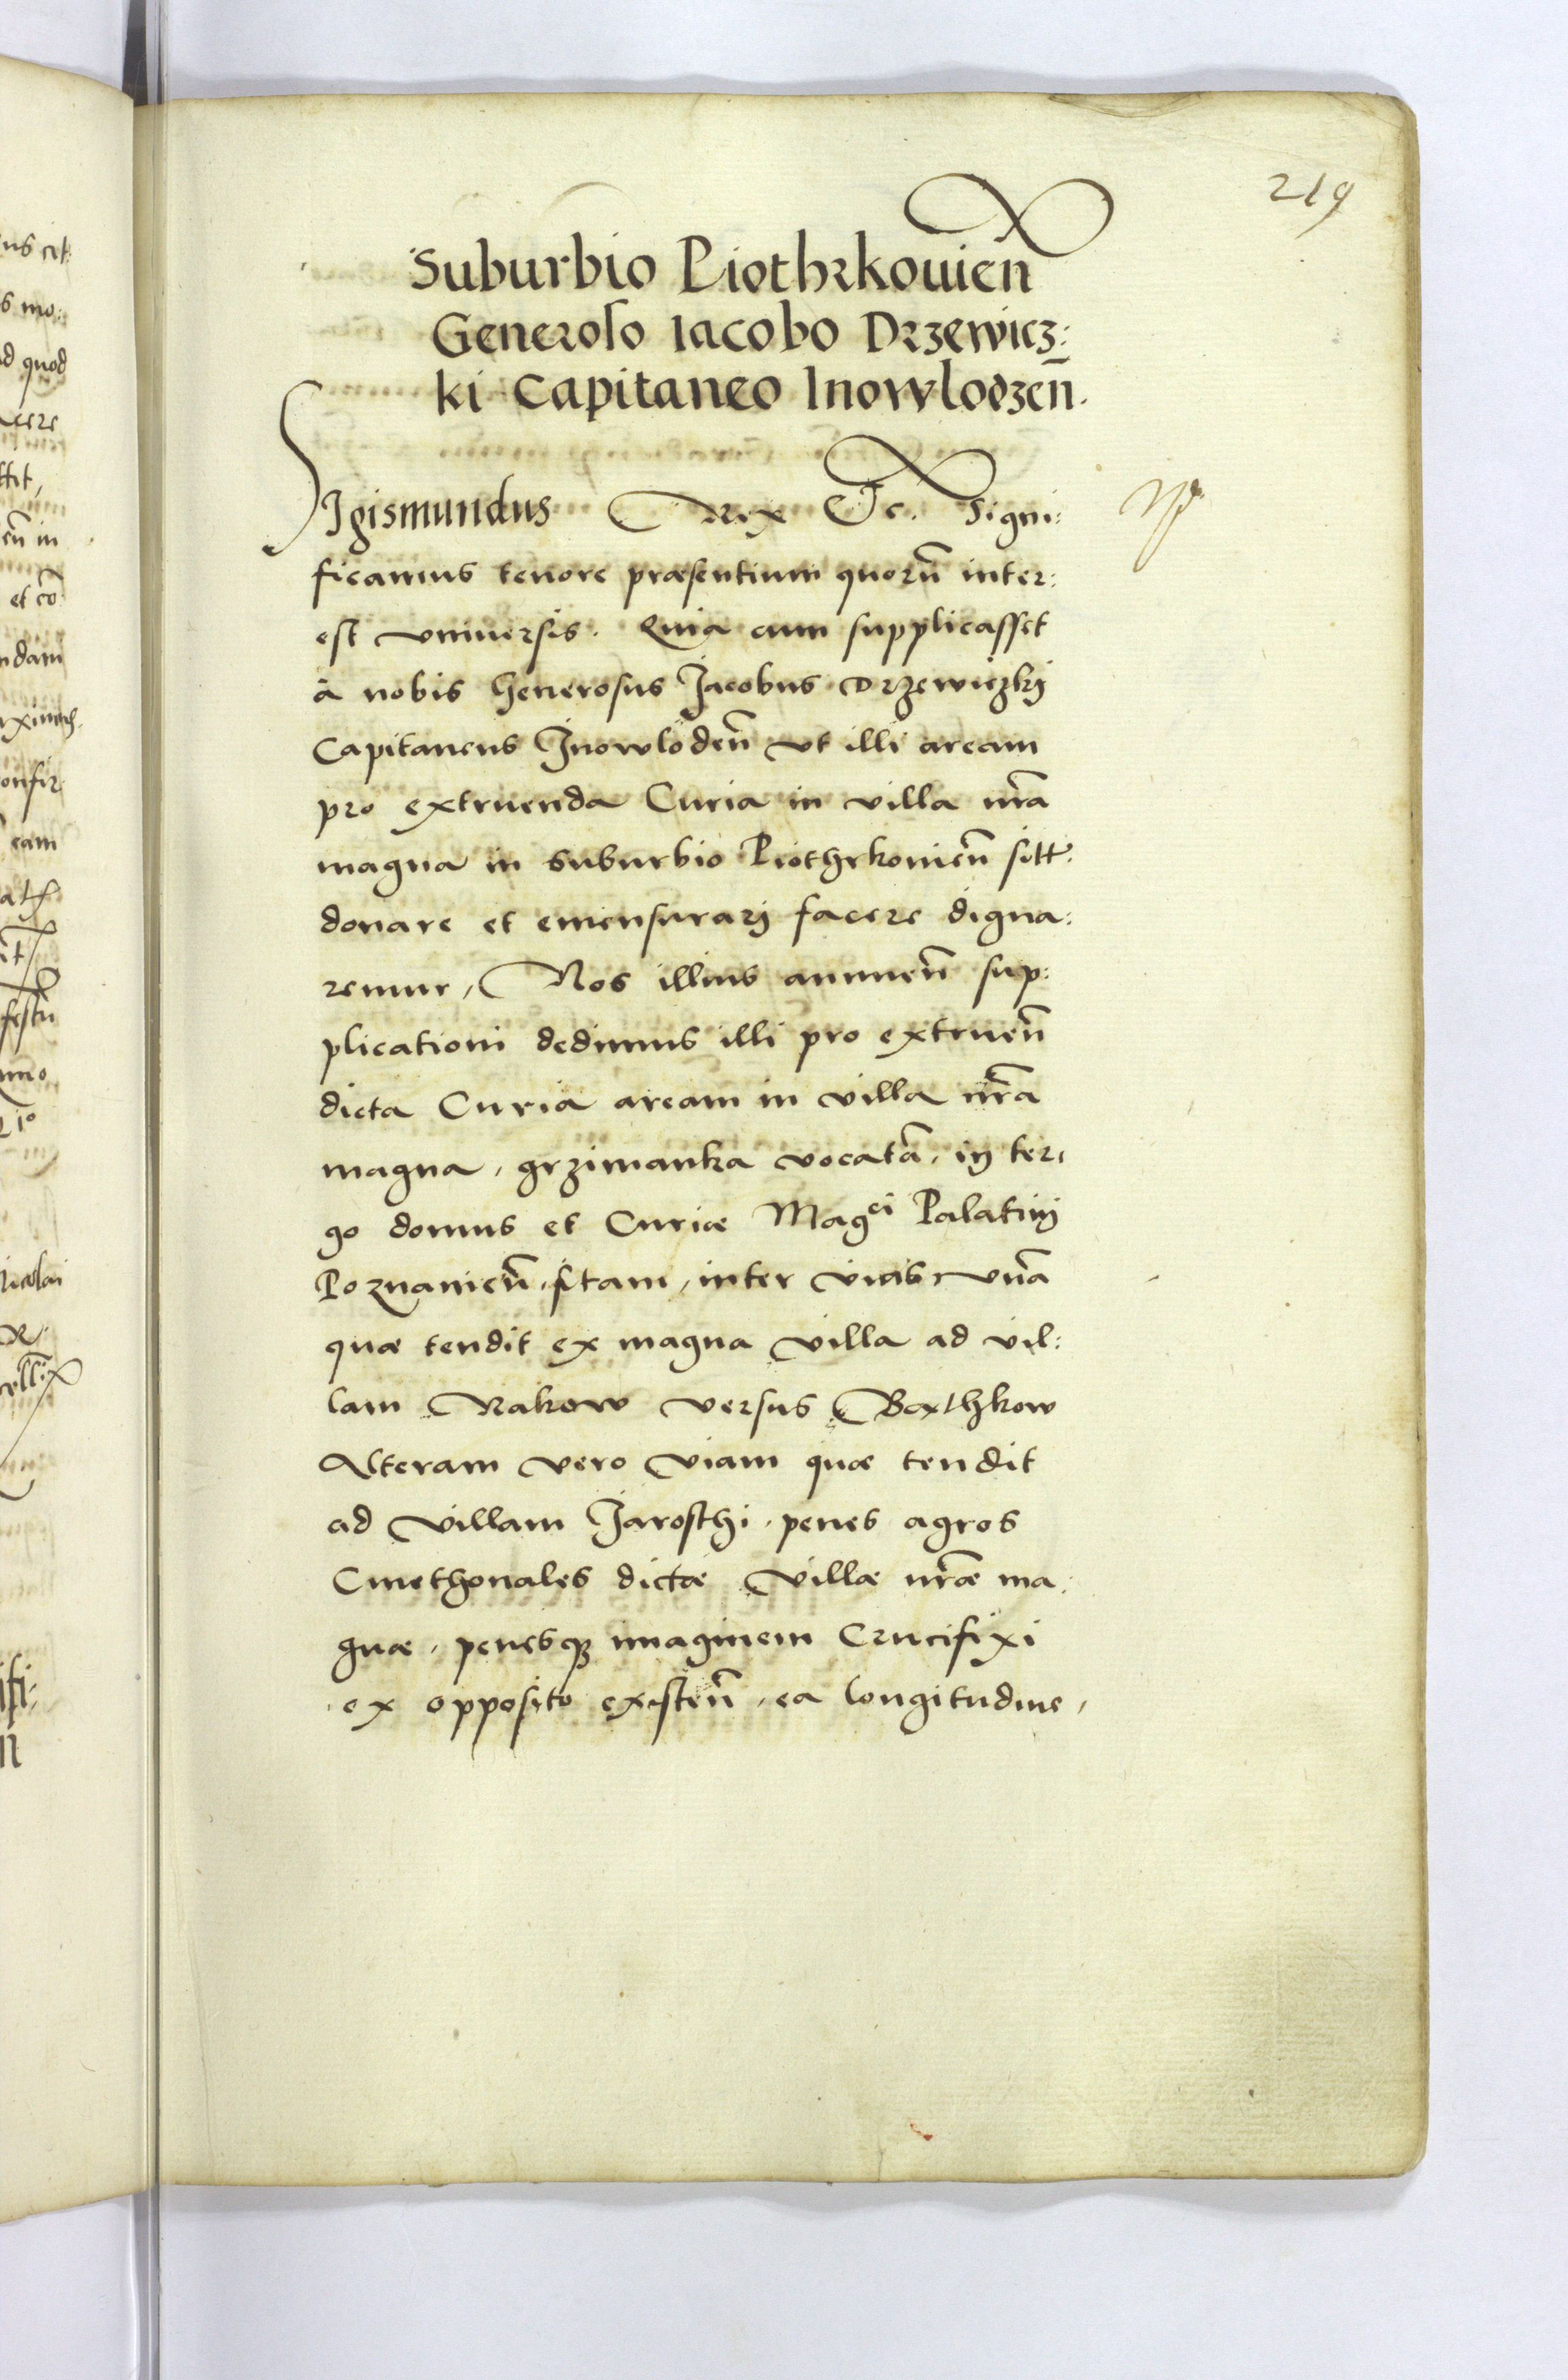 219
Suburbio Piothrkouien̄
Generoso Iacobo Drzewicz:
ki Capitaneo Inowlodzen̄.
Sigismundus Rex &c. Signi:
ficamus tenore præsentium quorū inter:
est vniuersis. Quia cum supplicasset
à nobis Generosus Jacobus Drzewiczkij
Capitaneus Jnowloden̄ vt illi aream
pro extruenda Curia in villa nr̄a
magna in suburbio Piothrkouien̄ sitt.
donare et emensurarj facere digna:
remur, Nos illius annuen̄ sup:
plicationi dedimus illi pro extruen̄
dicta Curia aream in villa nr̄a
magna, grzimanka vocatā, in ter:
go domus et Curiæ Mag^ci Palatinj
Poznanien̄, sitam, inter vias vnā
quæ tendit ex magna villa ad vil:
lam Rakow versus Bexthkow
Alteram vero viam quæ tendit
ad villam Jaroschi, penes agros
Cmethonales dictæ villæ nr̄æ ma:
gnæ, penesq3 imaginem Crucifixi
ex opposito existen̄, ea longitudine,